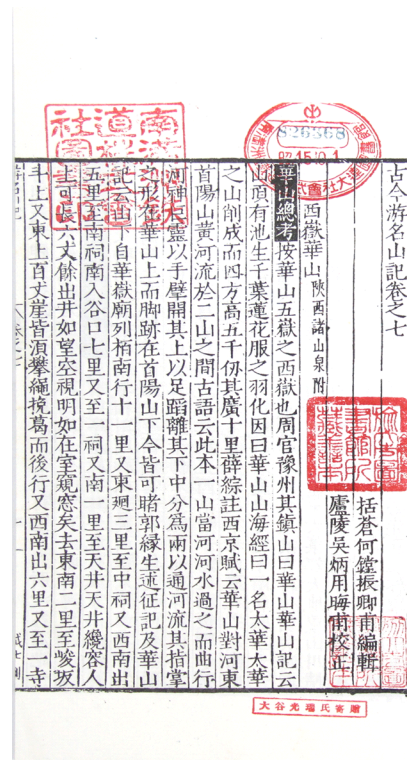 古今游名山記卷之七
括蒼何鏜振卿甫編輯
廬陵吳炳用晦甫校正
西嶽華山 陝西諸山泉附
華山總考 按華山五嶽之西嶽也周官豫州其鎮山曰華山華山記云
山頂有池生千葉蓮花服之羽化因曰華山山海經曰一名太華太華
之山削成而四方高五千仞其廣十里薛綜註西京賦云華山對河東
首陽山黃河流於二山之間古語云此本一山當河河水過之而曲行
河神巨靈以手擘開其上以足蹈離其下中分為兩以通河流其指掌
之形在華山上而脚跡在首陽山下今皆可睹郭緣生述征記及華山
記云山 自華嶽廟列栢南行十一里又東廻三里至中祠又西南出
五里至南祠南入谷口七里又至一祠又南一里至天井天井纔容人
上可長六丈餘出井如望空視明如在室窺窓矣去東南二里至峻坂
斗上又東上百丈崖皆須攀繩挽葛而後行又西南出六里又至一寺
826368
15.10.1
大谷光瑞氏寄贈